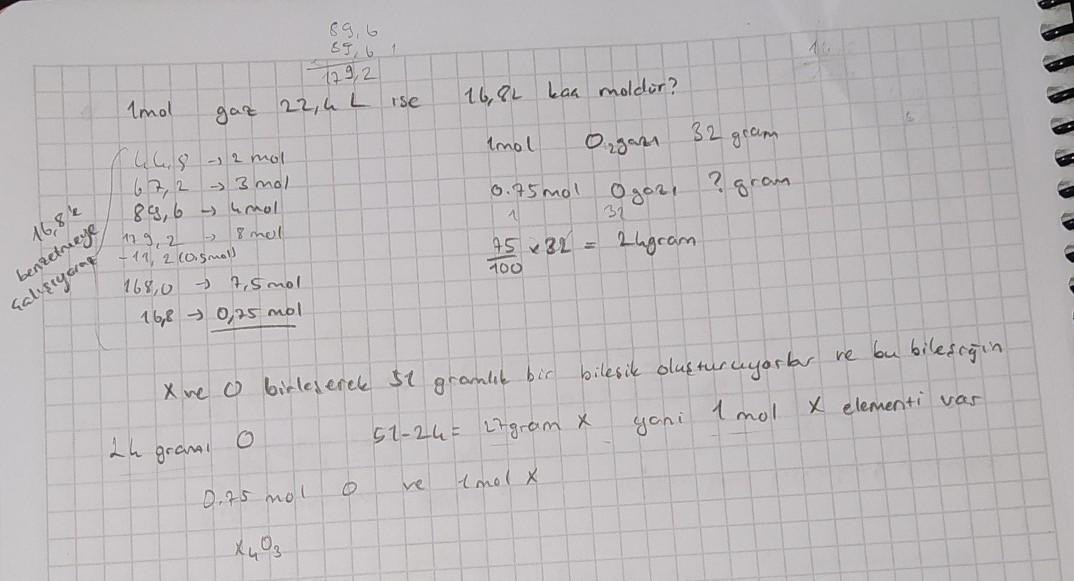 89,6
89,6
179,2
1mol gaz 22,4 L ise 16,8L kaç moldür?
44,8 → 2 mol
67,2 → 3 mol
89,6 → 4mol
179,2 → 8mol
-11,2 (0,5mol)
168,0 → 7,5mol
16,8 → 0,75 mol
16,8'e
benzetmeye
çalışıyoruz
1mol O₂gazı 32 gram
0.75mol O gazı ? gram
32
75/100 x 32 = 24gram
X ve O birleşerek 51 gramlık bir bileşik oluşturuyorlar ve bu bileşiğin
24 gramı O 51-24= 27gram X yani 1 mol X elementi var
0.75 mol O ve 1mol X
X₄O₃